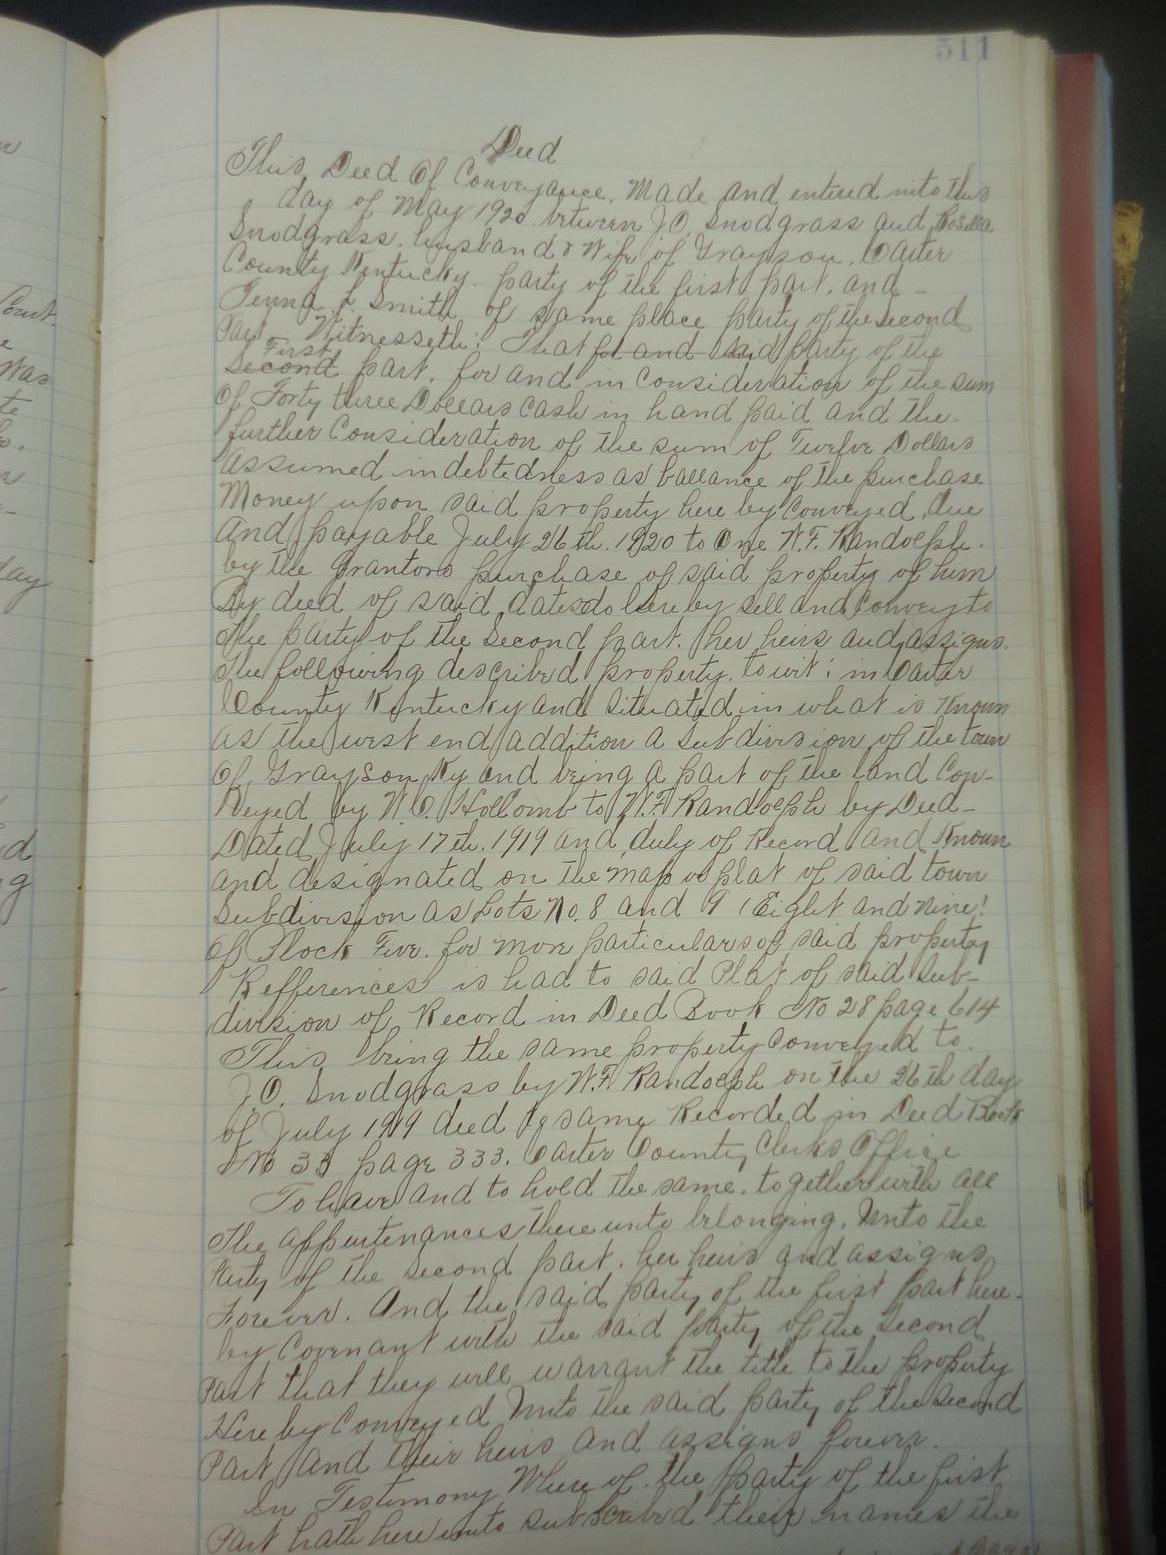 511
Deed
This Deed Of Conveyance, Made and entered into this
day of May 1920 between J.O. Snodgrass and Rosella
Snodgrass. husband & Wife of Grayson, Carter
County Kentucky. party of the first part. and -
Jenna L. Smith of same place party of the second
Part Witnesseth: That for and said party of the
First
Second part. for and in Consideration of the sum
Of Forty three Dollars Cash in hand paid and the.
further Consideration of the sum of Twelve Dollars
assumed indebtedness as ballance of the purchase
Money upon said property here by Conveyed, due
And payable July 26th. 1920 to One W.F. Randolph.
by the Grantors purchase of said property of him
By deed of said date do here by sell and Convey to
The party of the Second part. her heirs and assigns.
The following described property. towit: in Carter
County Kentucky and situated in what is Known
as the west end addition a subdivision of the town
Of Grayson Ky and being a part of the land Con-
veyed by W.C. Hollomb to W.F. Randolph by Deed-
Dated July 17th. 1919 and duly of Record and Known
and designated on the map or plat of said town
Subdivision as Lots No. 8 and 9 (Eight and Nine!
Of Block Five. for more particulars of said property
Refferences is had to said Plat of said Sub-
division of Record in Deed Book No 28 page 614
This being the same property Conveyed to.
J.O. Snodgrass by W.F. Randolph on the 26th day
of July 1919 deed to same Recorded in Deed Book
No 33 page 333. Carter County Clerks Office
To have and to hold the same. together with all
The appurtenances there unto belonging. Unto the
Party of the second part. her heirs and assigns
Forever. And the said party of the first part here-
by Covenant with the said party of the Second
Part that they will warrant the title to the property
Here by Conveyed Unto the said party of the Second
Part And their heirs and assigns forever.
In Testimony Where of. the party of the first
Part hath here unto subscribed their names the